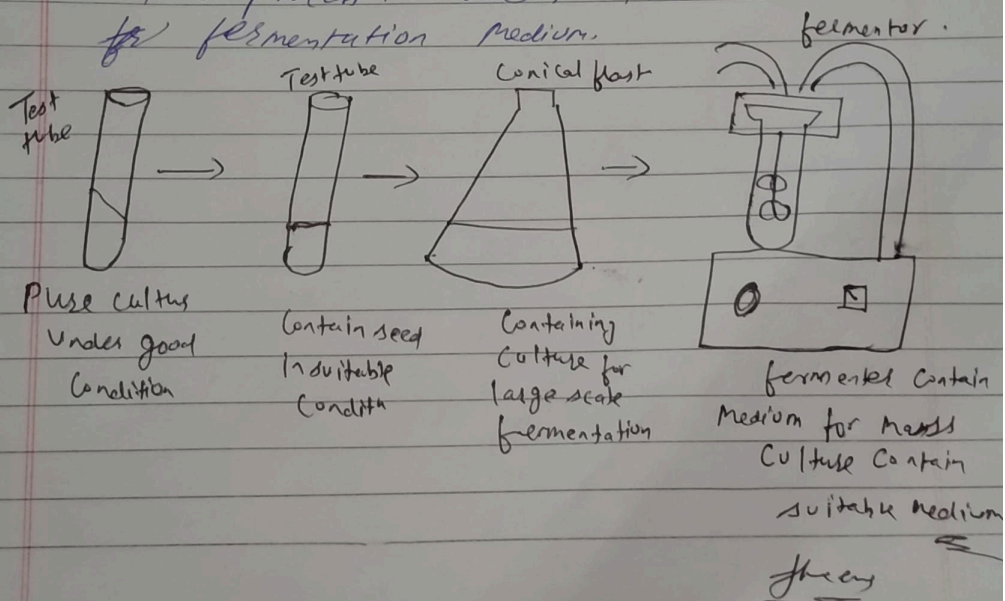 for fermentation medium.
fermentor.
Test tube
Conical flast
Test
tube
Puse cultus
Under good
Condition
Contain seed
In suitable
Condith
Containing
Culture for
large scale
fermentation
fermented Contain
Medium for Mass
Culture Contain
suitable medium